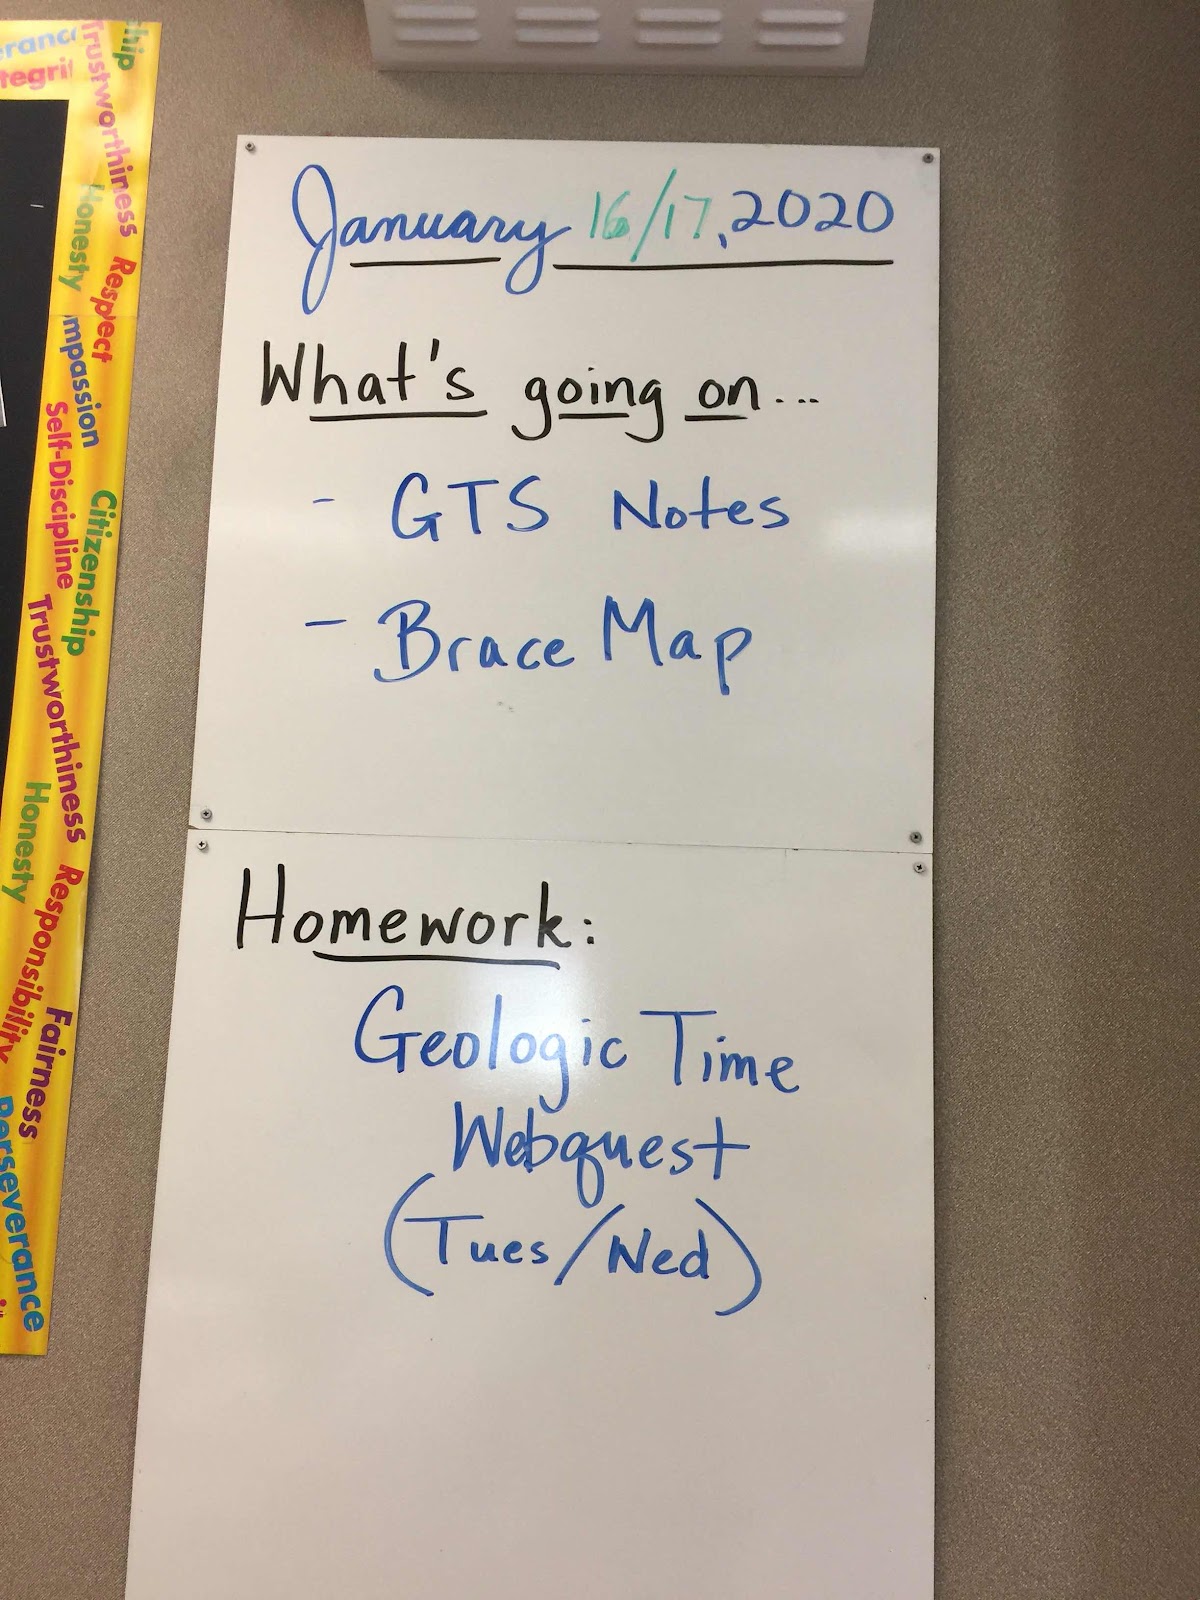 January 16/17, 2020
What's going on...
- GTS Notes
- Brace Map
Homework:
Geologic Time
Webquest
(Tues/Wed)
Trustworthiness
Honesty
Respect
Self-Discipline
Citizenship
Trustworthiness
Honesty
Responsibility
Fairness
Perseverance